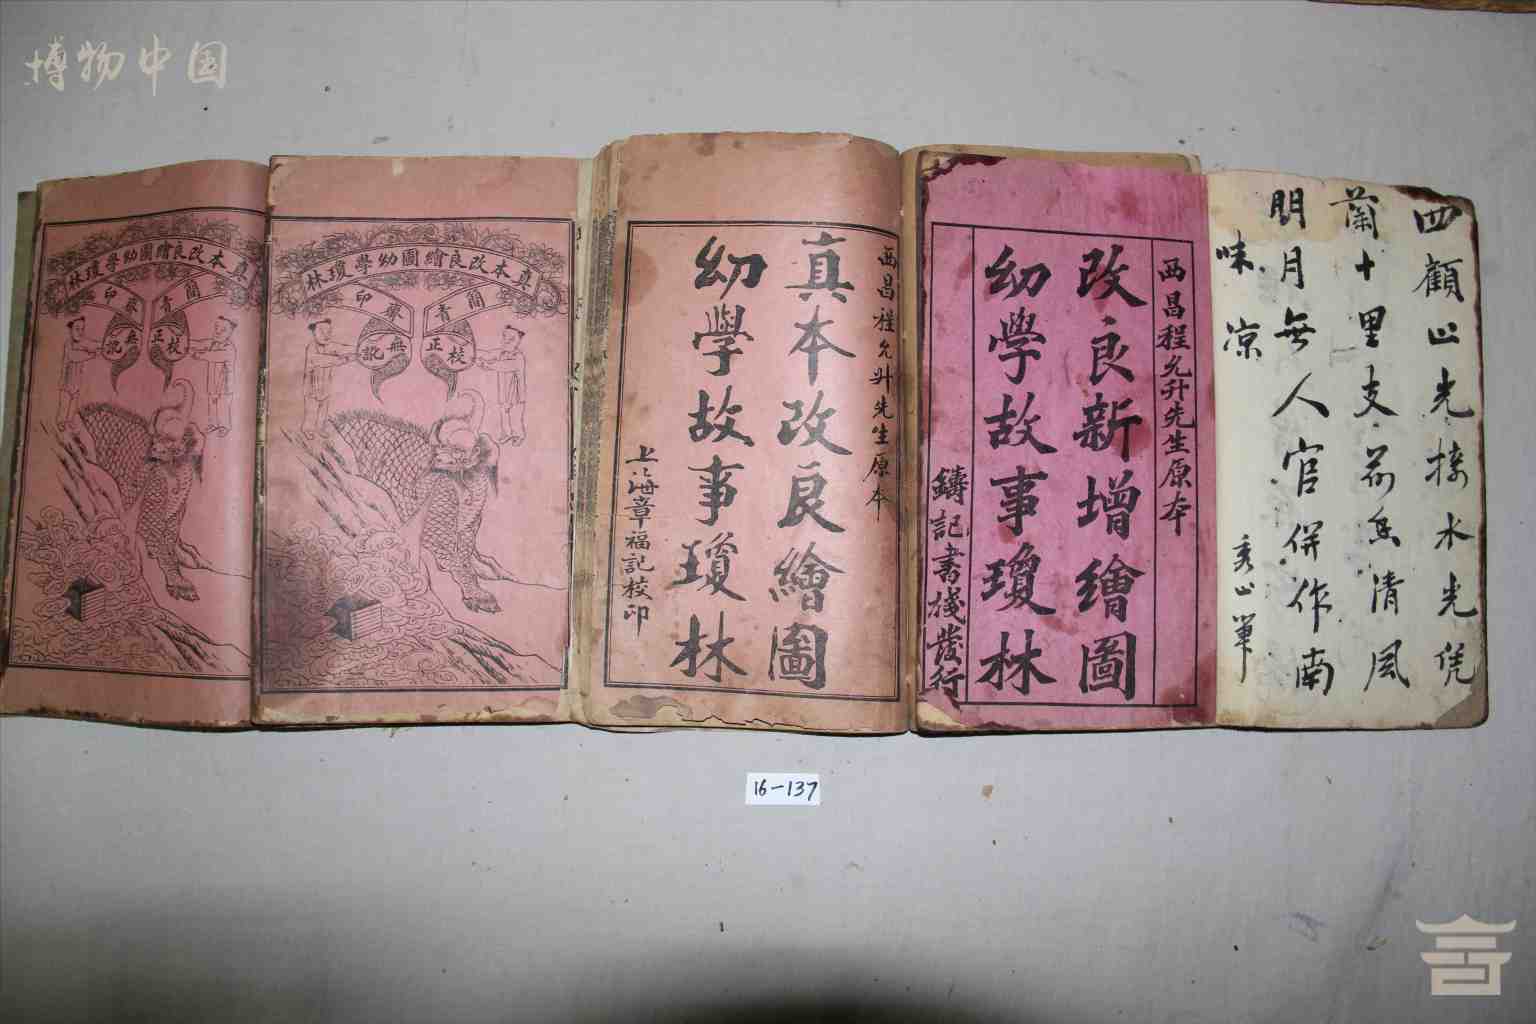 博物中国
四顧山光接水光凭
蘭十里芰荷香清風
明月無人官併作南
味凉
秀山筆
西昌程允升先生原本
改良新增繪圖
幼學故事瓊林
鑄記書棧發行
西昌程允升先生原本
真本改良繪圖
幼學故事瓊林
上海章福記校印
真本改良繪圖幼學瓊林
簡青齋印
校正無訛
真本改良繪圖幼學瓊林
簡青齋印
校正無訛
16-137